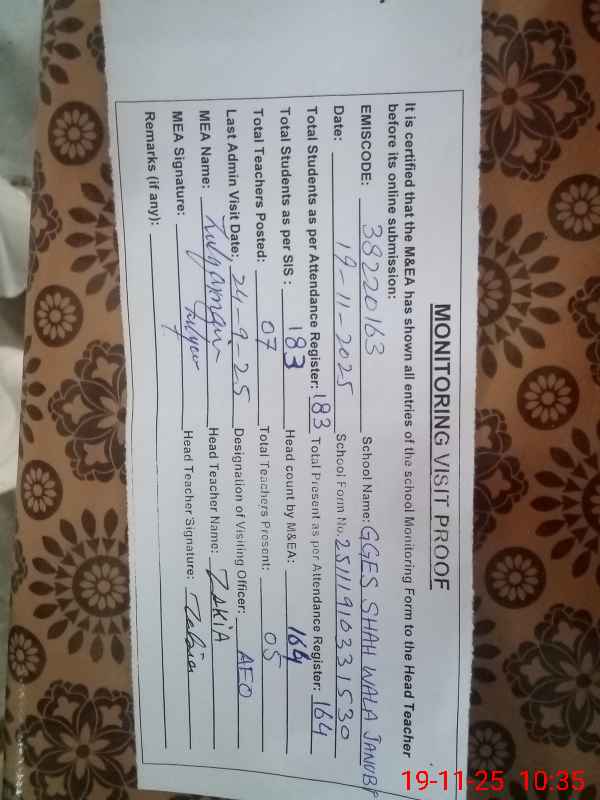 MONITORING VISIT PROOF
It is certified that the M&EA has shown all entries of the school Monitoring Form to the Head Teacher
before its online submission:
EMISCODE: 38220163 School Name: GGES SHAH WALA JANUBI
Date: 19-11-2025 School Form No. 251119103331530
Total Students as per Attendance Register: 183 Total Present as per Attendance Register: 164
Total Students as per SIS : 183 Head count by M&EA: 164
Total Teachers Posted: 07 Total Teachers Present: 05
Last Admin Visit Date: 24-9-25 Designation of Visiting Officer: AEO
MEA Name: Head Teacher Name: ZAKIA
MEA Signature: Head Teacher Signature: Zakia
Remarks (if any):
19-11-25 10:35